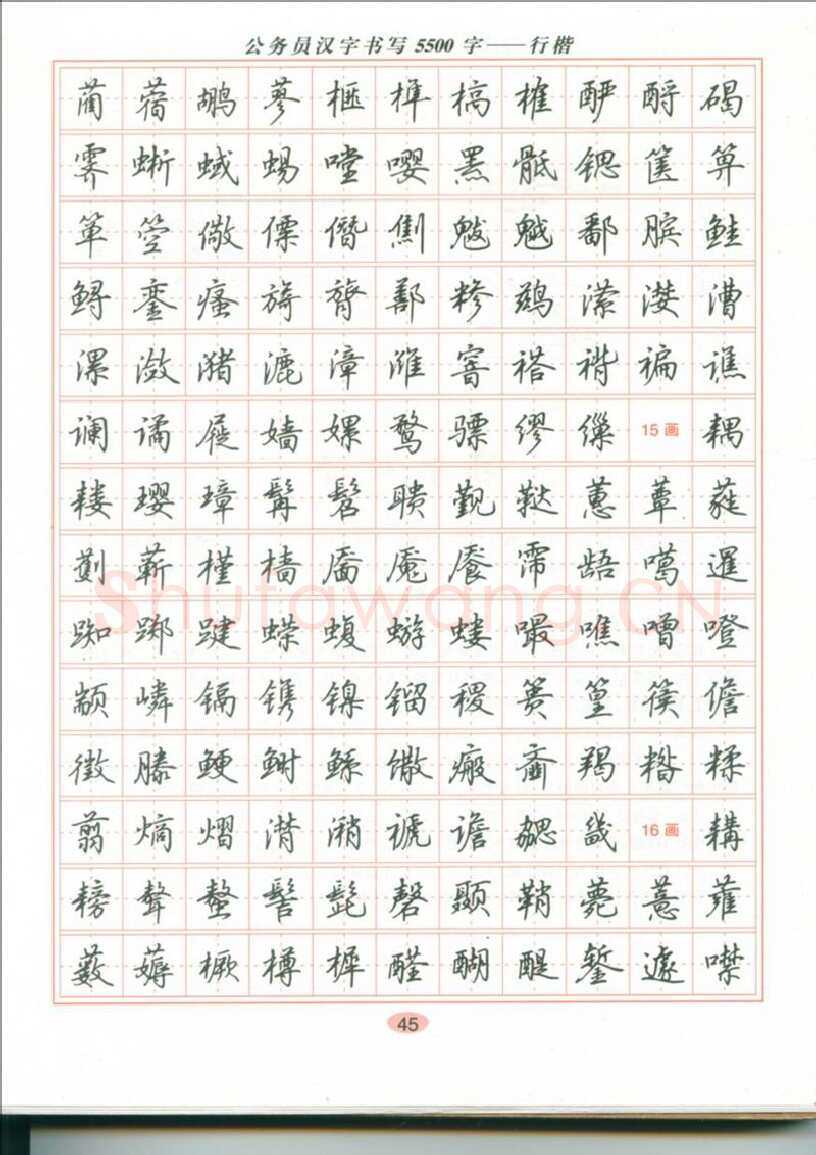 公务员汉字书写5500字——行楷
蔺 蓿 鹕 蓼 榧 榫 槁 榷 酽 酹 碣
霁 蜥 蜮 蜴 嘡 嘤 罴 骶 锶 箧 箅
箪 箜 儆 僳 僭 劁 魃 魆 鄱 膑 鲑
鲟 銮 瘙 旖 膂 鄯 糁 鹚 潆 漤 漕
漯 潋 潴 漉 漳 潍 窨 褡 褙 褊 谯
谰 谲 屣 嫱 嫘 鹜 骠 缪 缫 15画 耦
耧 璎 璋 髯 髫 聩 觐 鞑 蕙 蕈 蕤
劐 蕲 槿 樯 靥 魇 餍 霈 龉 噶 暹
踟 踯 踺 蝾 蝮 蝣 蝼 嘬 噍 噌 噔
颛 嶙 镉 镌 镍 镏 稷 篑 篁 篌 儋
徵 滕 鲠 鲥 鲧 馓 瘢 齑 羯 糌 糅
翦 熵 熠 潸 潲 褫 谵 勰 畿 16画 耩
耪 聱 螯 髻 髭 磬 颞 鞘 薨 薏 蕹
薮 薅 橛 樽 樨 醛 醐 醍 錾 遽 噤
45
Shufawang.CN